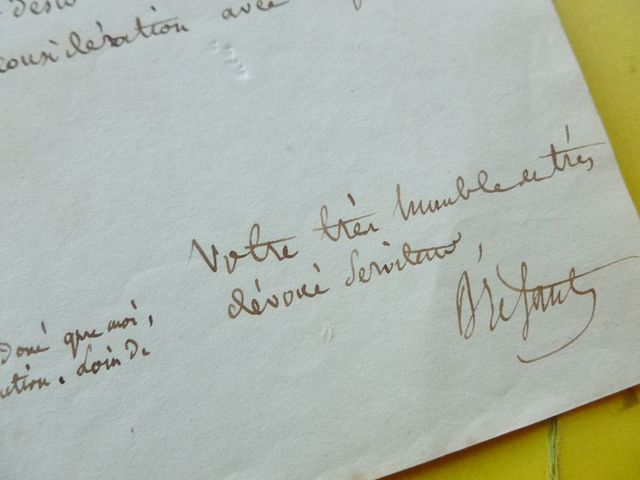 considération avec
Votre très humble et très
dévoué Serviteur,
doné que moi,
ution. Loin de